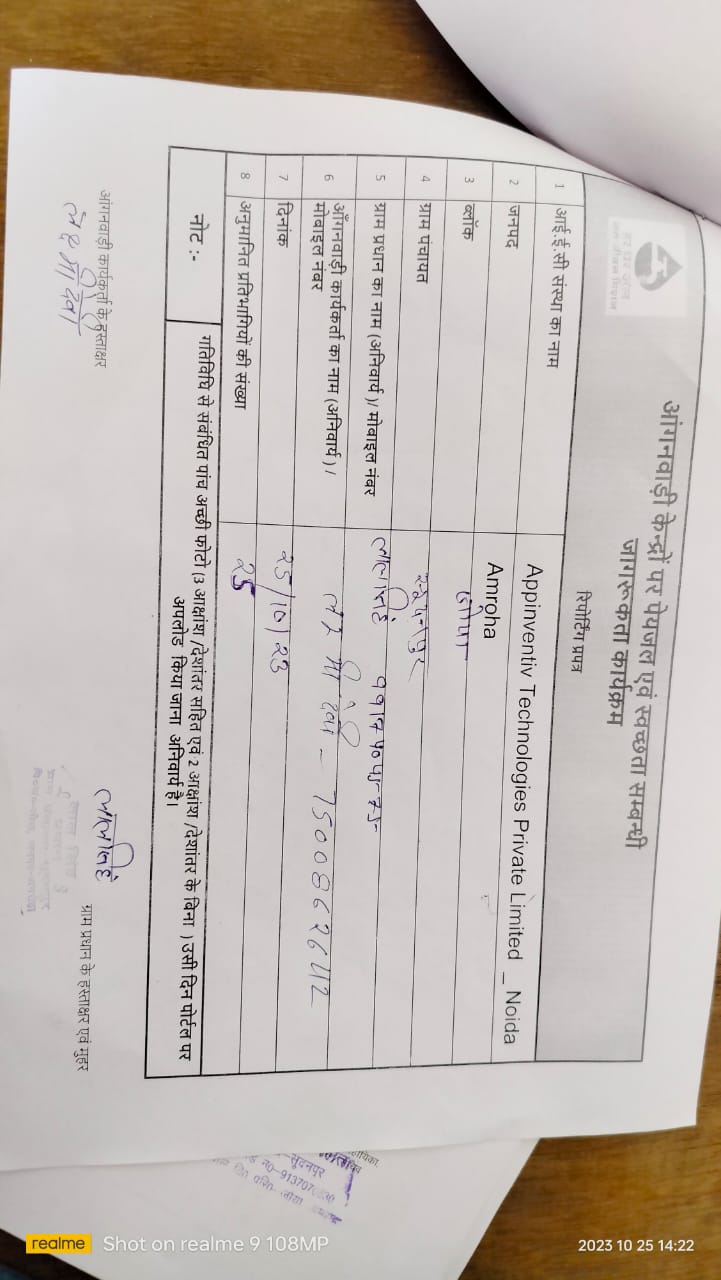 हर घर जल
जल जीवन मिशन
आंगनवाड़ी केन्द्रों पर पेयजल एवं स्वच्छता सम्बन्धी
जागरूकता कार्यक्रम
रिपोर्टिंग प्रपत्र
1 आई.ई.सी संस्था का नाम Appinventiv Technologies Private Limited _ Noida
2 जनपद Amroha
3 ब्लॉक जोया
4 ग्राम पंचायत
5 ग्राम प्रधान का नाम (अनिवार्य)/ मोबाइल नंबर लालसिंह
6 आँगनवाड़ी कार्यकर्ता का नाम (अनिवार्य) / मोबाइल नंबर
7 दिनांक 25/10/23
8 अनुमानित प्रतिभागियों की संख्या 25
नोट :- गतिविधि से संबंधित पांच अच्छी फोटो (3 आक्षांश /देशांतर सहित एवं 2 आक्षांश /देशांतर के बिना ) उसी दिन पोर्टल पर
अपलोड किया जाना अनिवार्य है।
लालसिंह
आंगनवाड़ी कार्यकर्ता के हस्ताक्षर
ग्राम प्रधान के हस्ताक्षर एवं मुहर
realme Shot on realme 9 108MP
2023 10 25 14:22